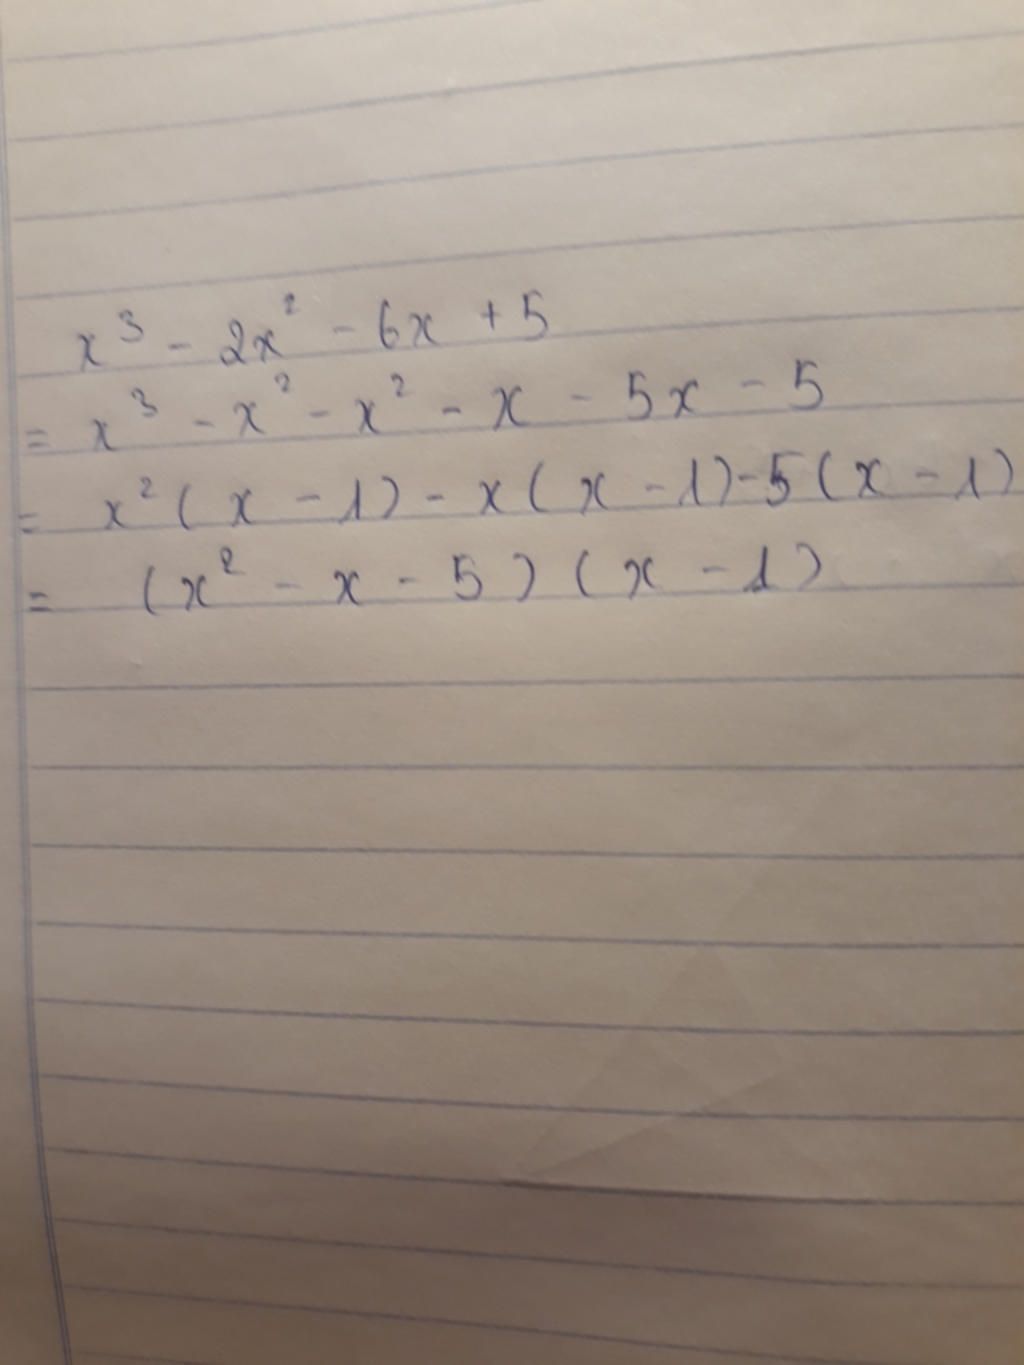 x³ - 2x² - 6x + 5
= x³ - x² - x² - x - 5x - 5
= x² ( x - 1 ) - x ( x - 1 ) - 5 ( x - 1 )
= ( x² - x - 5 ) ( x - 1 )